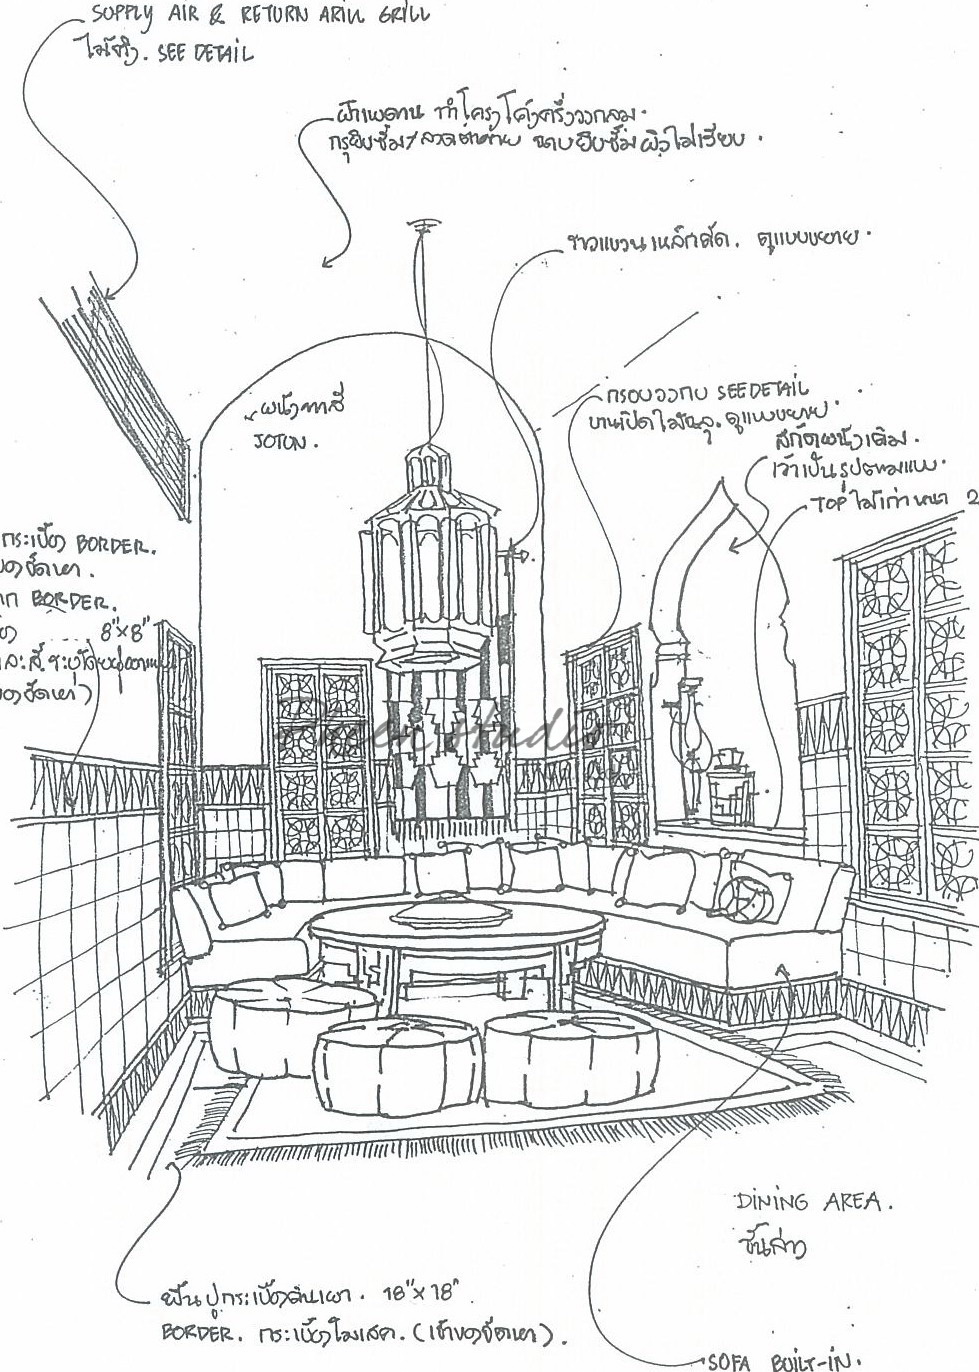 SUPPLY AIR & RETURN AIR GRILL
ไม้จริง. SEE DETAIL
ฝ้าเพดาน ทำโครงโค้งครึ่งวงกลม.
กรุยิบซั่ม / ฉาบยิบซั่ม ผิวไม่เรียบ.
ราวแขวนเหล็กดัด. ดูแบบขยาย.
ผนังทาสี
JOTUN.
กรอบวงกบ SEE DETAIL
บานเปิดไม้ฉลุ. ดูแบบขยาย.
สกัดผนังเดิม.
เว้าเป็นรูปตามแบบ.
TOP ไม้เก่า หนา 2
กระเบื้อง BORDER.
ของจัดหา.
BORDER.
8"x8"
DINING AREA.
ชั้นล่าง
พื้นปูกระเบื้องดินเผา. 18"x18"
BORDER. กระเบื้องโมเสค. (เจ้าของจัดหา).
SOFA BUILT-IN.